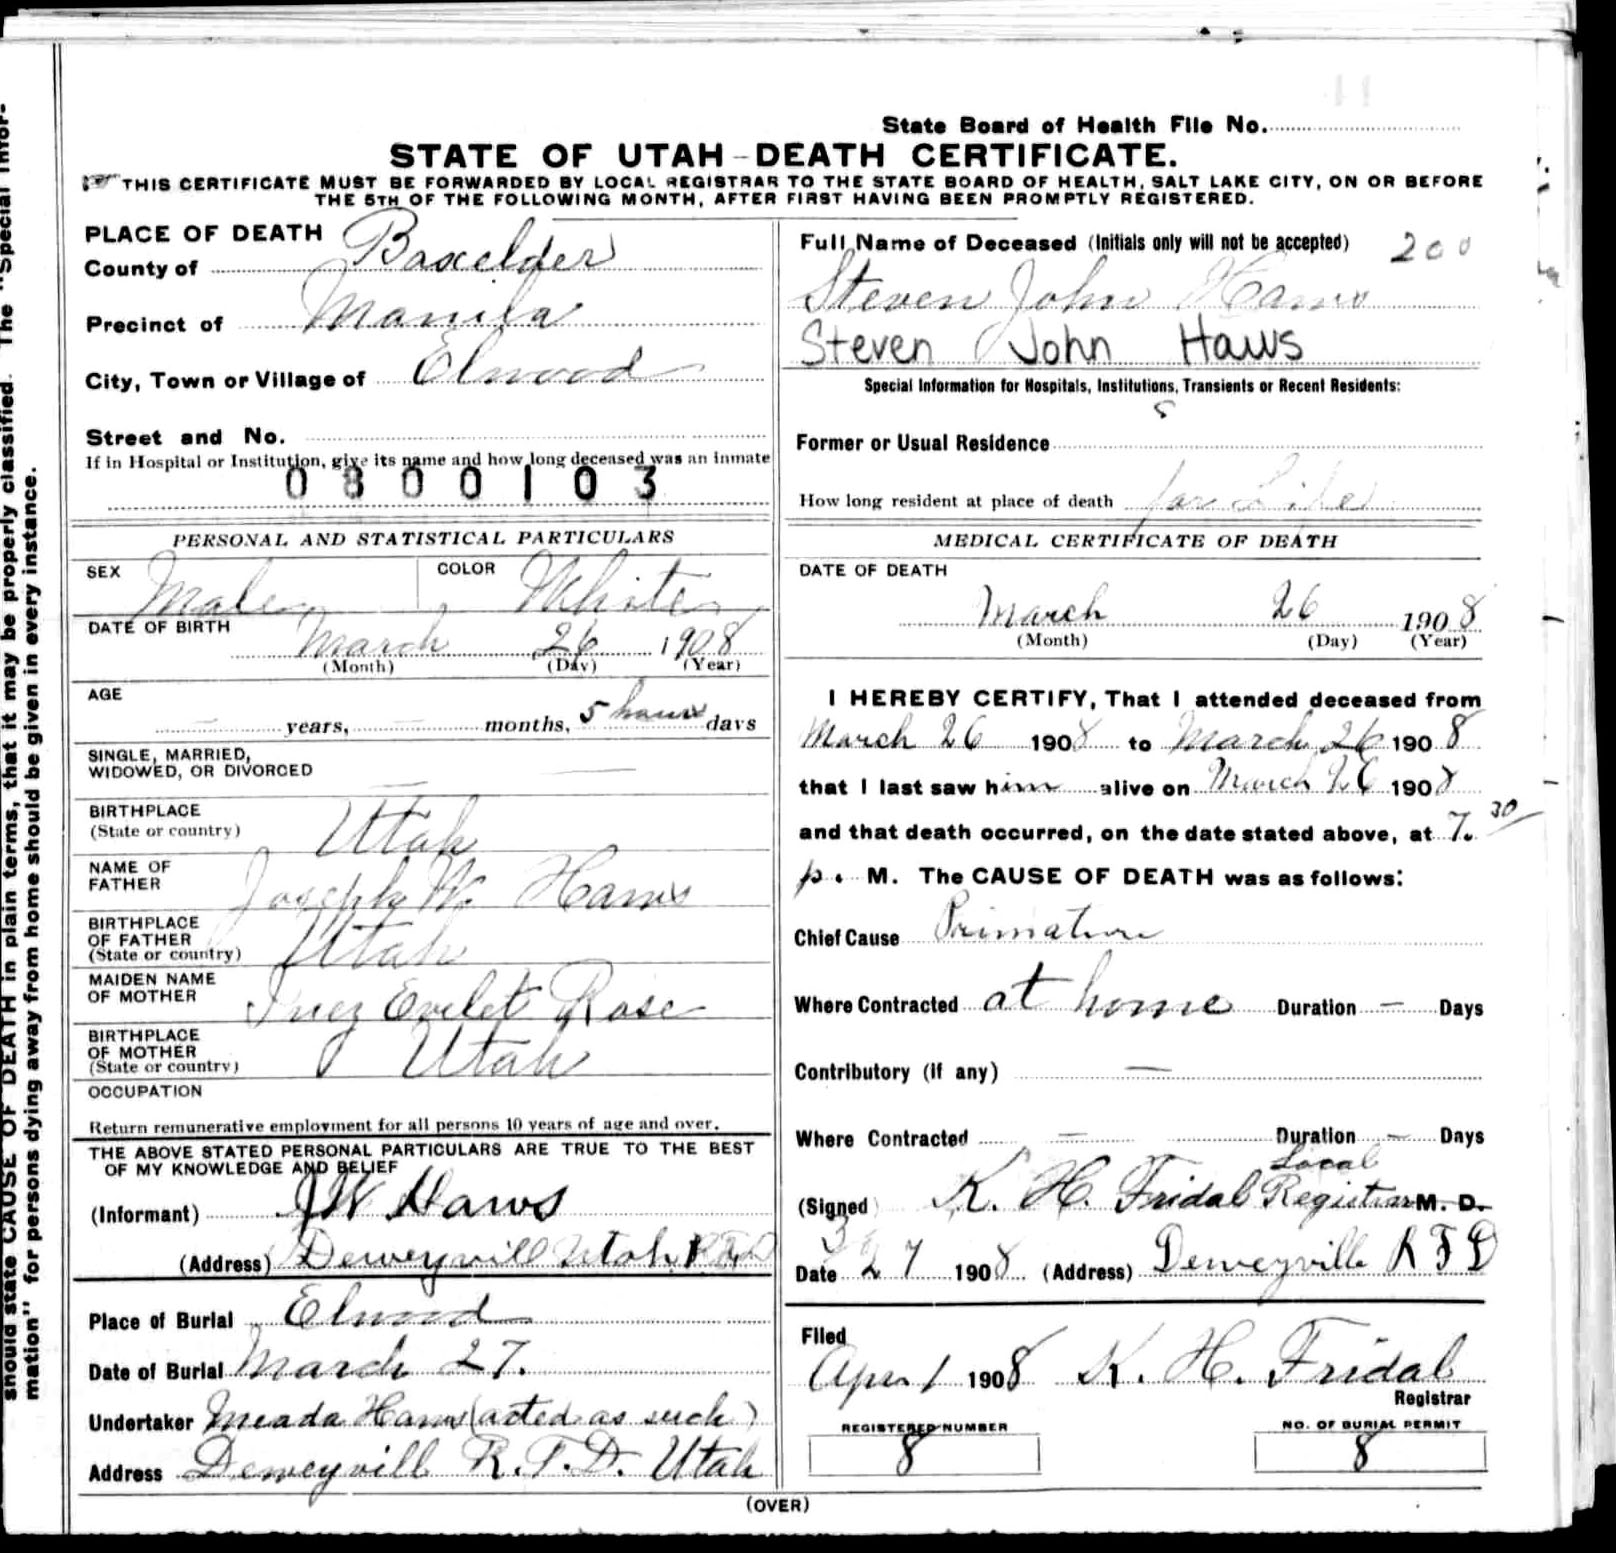 State Board of Health File No.
STATE OF UTAH - DEATH CERTIFICATE.
THIS CERTIFICATE MUST BE FORWARDED BY LOCAL REGISTRAR TO THE STATE BOARD OF HEALTH, SALT LAKE CITY, ON OR BEFORE
THE 5TH OF THE FOLLOWING MONTH, AFTER FIRST HAVING BEEN PROMPTLY REGISTERED.
should state CAUSE OF DEATH in plain terms, that it may be properly classified. The "Special Infor-
mation" for persons dying away from home should be given in every instance.
PLACE OF DEATH
County of Boxelder
Precinct of Manila
City, Town or Village of Elwood
Street and No.
If in Hospital or Institution, give its name and how long deceased was an inmate
0800103
PERSONAL AND STATISTICAL PARTICULARS
SEX Male COLOR White
DATE OF BIRTH
March 26 1908
(Month) (Day) (Year)
AGE
— years, — months, 5 hours days
SINGLE, MARRIED,
WIDOWED, OR DIVORCED —
BIRTHPLACE
(State or country) Utah
NAME OF
FATHER Joseph W. Haws
BIRTHPLACE
OF FATHER
(State or country) Utah
MAIDEN NAME
OF MOTHER Inez Evelet Rose
BIRTHPLACE
OF MOTHER
(State or country) Utah
OCCUPATION
Return remunerative employment for all persons 10 years of age and over.
THE ABOVE STATED PERSONAL PARTICULARS ARE TRUE TO THE BEST
OF MY KNOWLEDGE AND BELIEF
(Informant) JW Haws
(Address) Deweyvill Utah R.F.D
Place of Burial Elwood
Date of Burial March 27.
Undertaker Meada Haws (acted as such)
Address Deweyvill R.F.D. Utah
Full Name of Deceased (Initials only will not be accepted) 200
Steven John Haws
Steven John Haws
Special Information for Hospitals, Institutions, Transients or Recent Residents:
Former or Usual Residence
How long resident at place of death for Life
MEDICAL CERTIFICATE OF DEATH
DATE OF DEATH
March 26 1908
(Month) (Day) (Year)
I HEREBY CERTIFY, That I attended deceased from
March 26 1908 to March 26 1908
that I last saw him alive on March 26 1908
and that death occurred, on the date stated above, at 7.30
p. M. The CAUSE OF DEATH was as follows:
Chief Cause Primature
Where Contracted at home Duration — Days
Contributory (if any) —
Where Contracted — Duration — Days
Local
(Signed) K. H. Fridal Registrar M. D.
3
Date 27 1908 (Address) Deweyville R F D
Filed
Apr. 1 1908 K. H. Fridal
Registrar
REGISTERED NUMBER NO. OF BURIAL PERMIT
8 8
(OVER)